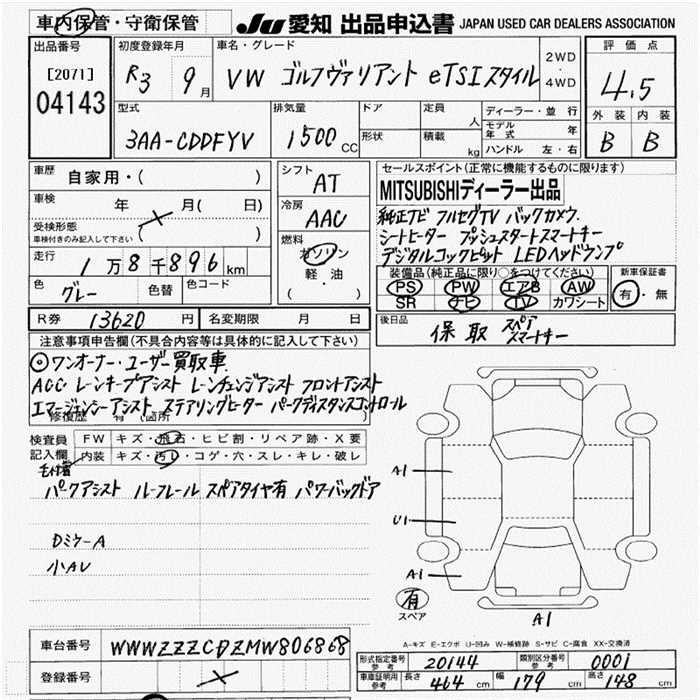 車内保管・守衛保管
JU 愛知 出品申込書 JAPAN USED CAR DEALERS ASSOCIATION
出品番号
[2071]
04143
初度登録年月
R3 9月
車名・グレード
VW ゴルフヴァリアント eTSIスタイル
2WD
・
4WD
評価点
4.5
外装 内装
B B
型式
3AA-CDDFYV
排気量
1500 CC
ドア
形状
定員 人
積載 kg
ディーラー・並行
モデル年式 年
ハンドル 左・右
車歴 自家用・( )
車検 年 月( 日)
受検形態
車検付きのみ記入して下さい ( )
走行 1万8千896km
色 グレー 色替 色コード
シフト
AT
冷房
AAC
燃料
ガソリン
軽・油
( ・ )
セールスポイント(正常に機能するものに限ります)
MITSUBISHIディーラー出品
純正ナビ フルセグTV バックカメラ
シートヒーター プッシュスタートスマートキー
デジタルコックピット LEDヘッドランプ
装備品(純正品に限り○をつけてください)
PS PW エアB AW
SR ナビ TV カワシート
新車保証書
有・無
R券 13620 円 名変期限 月 日
後日品
保 取 スペア
スマートキー
注意事項申告欄(不具合内容等は具体的に記入して下さい)
◎ワンオーナー・ユーザー買取車
ACC レーンキープアシスト レーンチェンジアシスト フロントアシスト
エマージェンシーアシスト ステアリングヒーター パークディスタンスコントロール
修復歴 有(箇所 )
検査員記入欄
FW キズ・飛石・ヒビ割・リペア跡・X要
内装 キズ・汚れ・コゲ・穴・スレ・キレ・破レ
パークアシスト ルーフレール スペアタイヤ有 パワーバックドア
DミラーA
小AU
A1
U1
A1
A1
有
スペア
A-キズ E-エクボ U-凹み W-補修跡 S-サビ C-腐食 XX-交換済
車台番号 WWWZZZCDZMW806868
登録番号
形式指定番号
参考
20144
類別区分番号
参考
0001
車庫証明用
参考
長さ 464 cm 幅 179 cm 高さ 148 cm